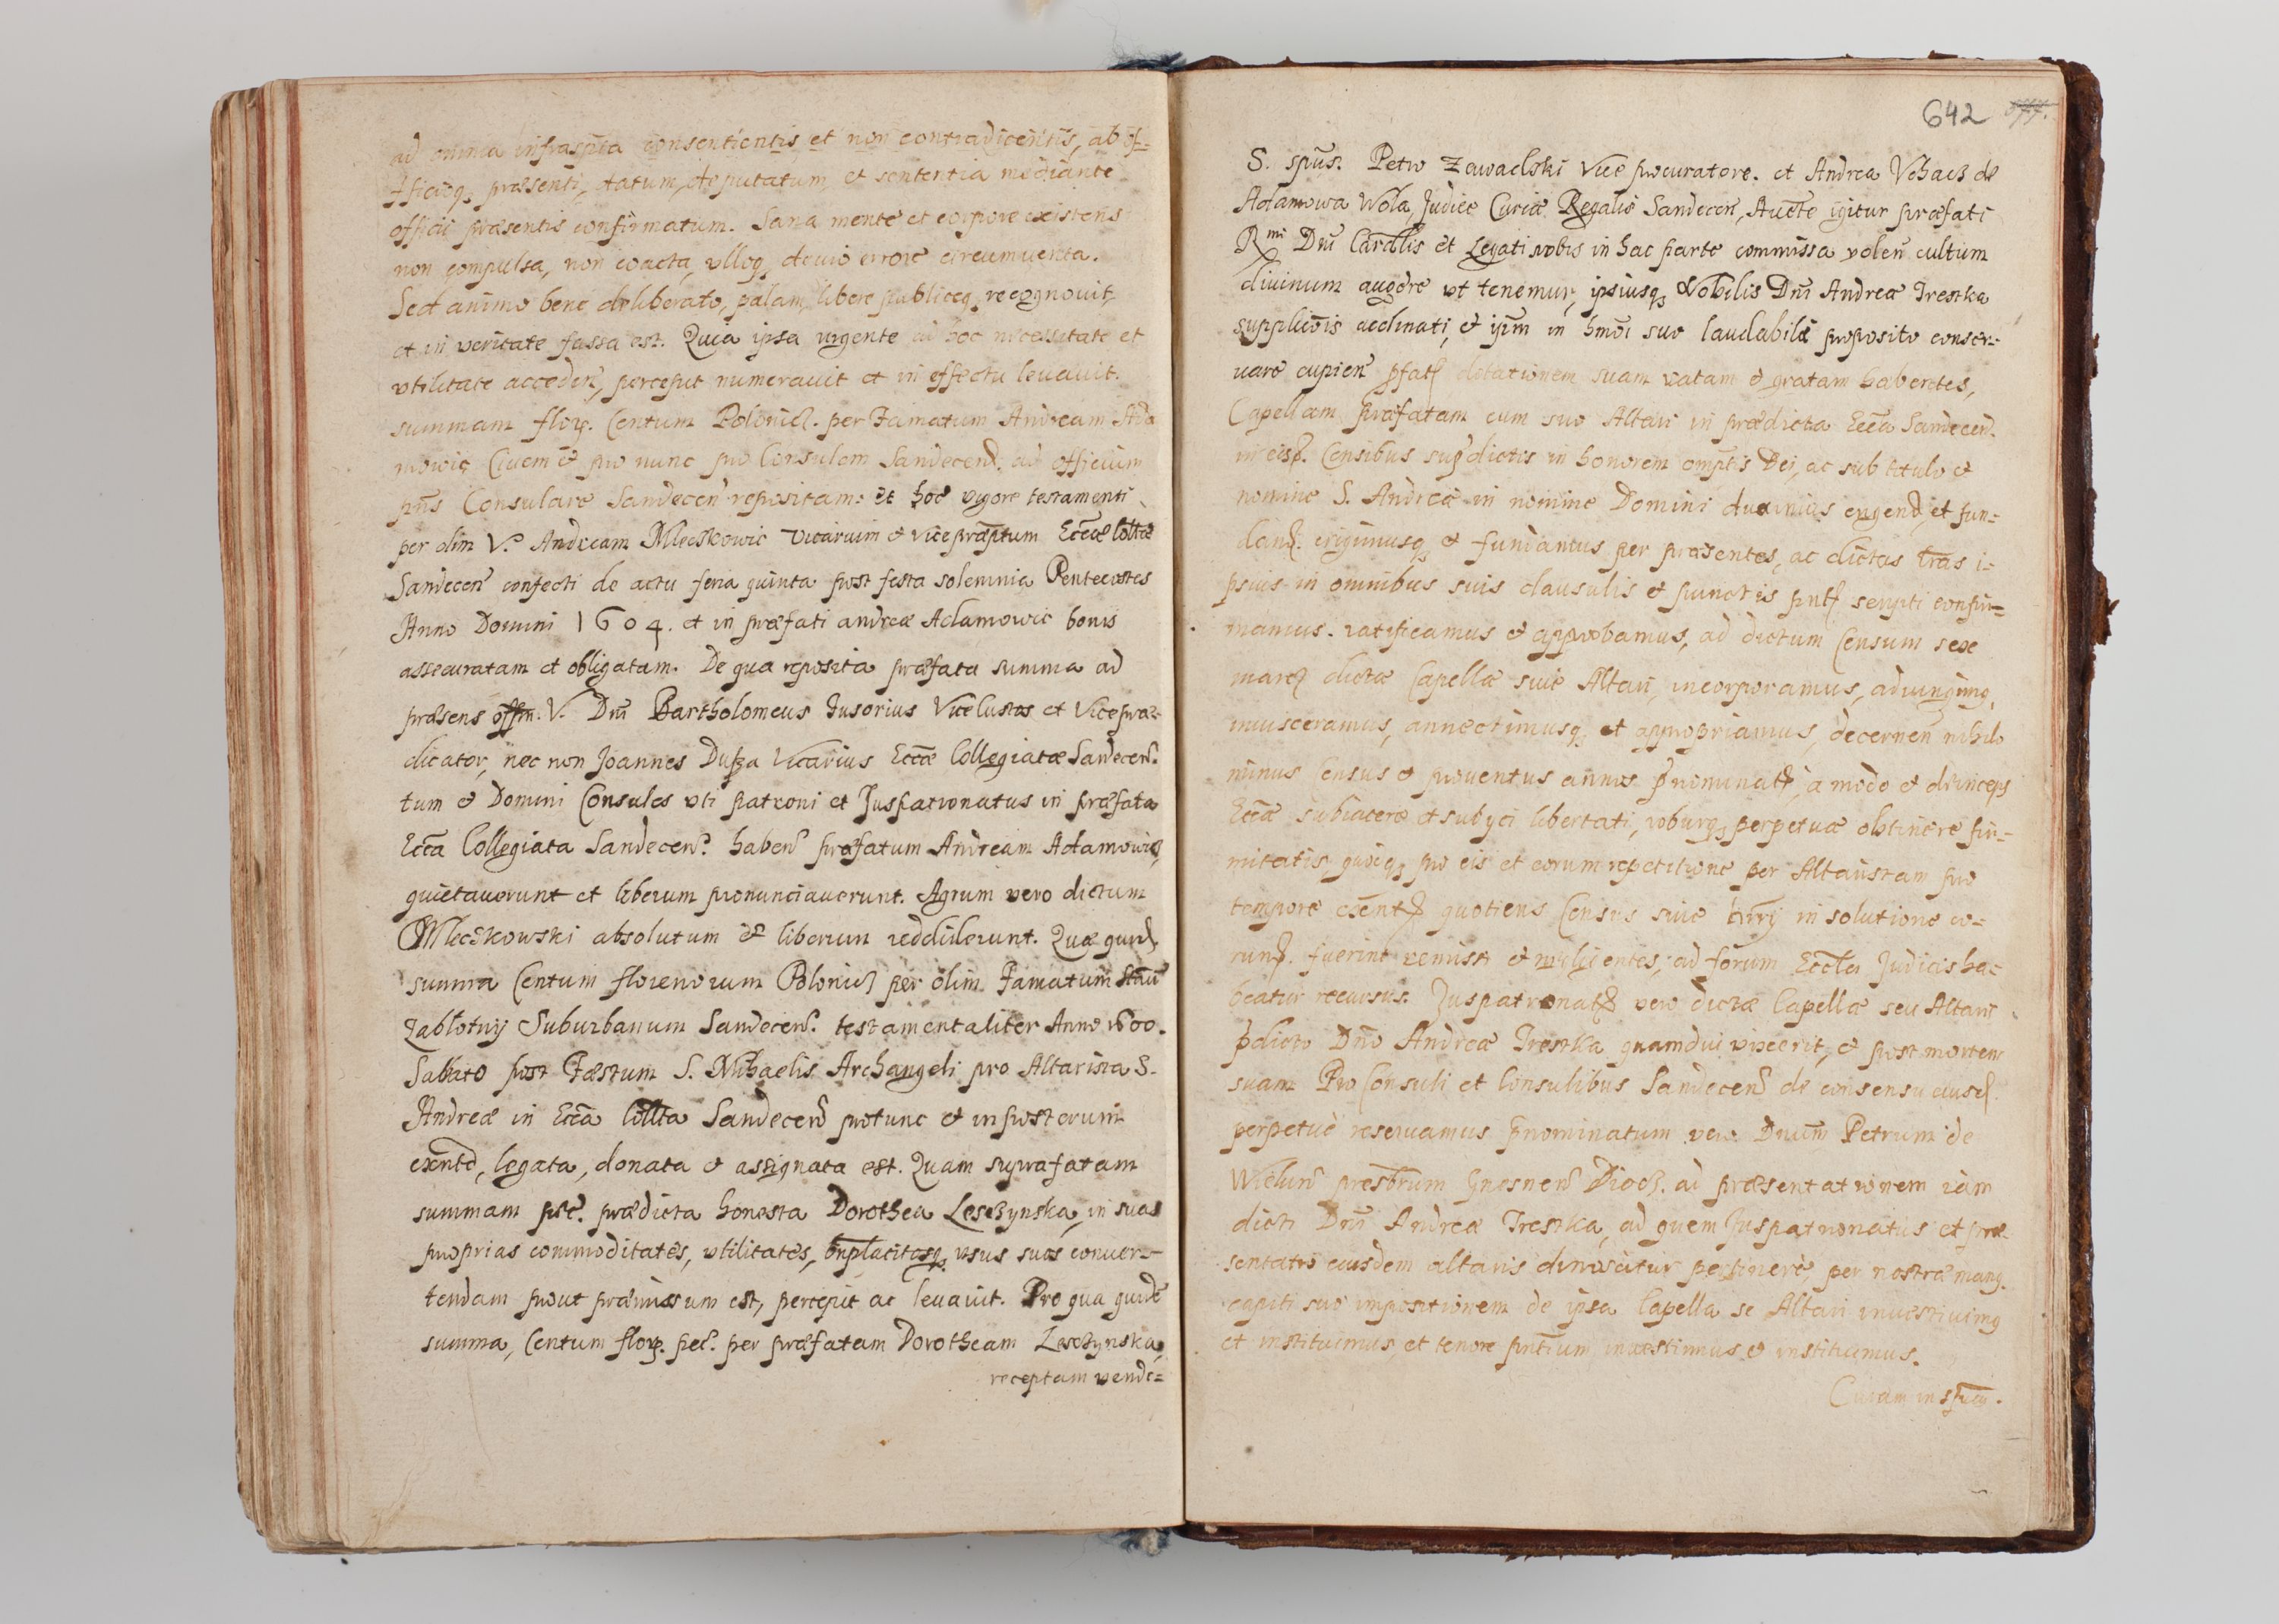 ad omnia infraspta consentientis et non contradicentis, ab of-
fficioq, præsenti, datum, deputatum, et sententia mediante
officii præsentis confirmatum. Sana mente et corpore existens
non compulsa, non coacta, vlloq, devio errore circumventa.
Sed animo bene deliberato, palam, libere publiceq, recognovit
et in veritate fassa est. Quia ipsa vrgente ad hoc necessitate et
vtilitate acceden, percepit numeravit et in effectu levavit.
summam flor. Centum Polonic. per Famatum Andream Ada
mowic Civem et pro nunc pro Consulem Sandecen. ad officium
pns Consulare Sandecen repositam: et hoc vigore testamenti
per olim V. Andream Mleczkowic vicarium et vicepræptum Eccæ Coltæ
Sandecen confecti de actu feria quinta post festa solemnia Pentecostes
Anno Domini 1604. et in præfati andreæ Adamowic bonis
assecuratam et obligatam. De qua reposita præfata summa ad
præsens offm. V. Dni Bartholomeus Fusorius Vicecustos et Vicepræ-
dicator, nec non Joannes Dusza Vicarius Eccæ Collegiatæ Sandecen.
tum et Domini Consules vti patroni et Juspatronatus in præfata
Ecca Collegiata Sandecen. haben præfatum Andream Adamowic,
quietaverunt et liberum pronunciaverunt. Agrum vero dictum
Mleczkowski absolutum et liberum reddiderunt. Quæ quid,
summa Centum florenorum Polonic per olim Famatum Stan
Zablotny Suburbanum Sandecen. testamentaliter Anno 1600.
Sabbato post Fæstum S. Michaelis Archangeli pro Altarista S.
Andreæ in Ecca Collta Sandecen protunc et in posterum
exntē, legata, donata et assignata est. Quam suprafatam
summam pec. prædicta honesta Dorothea Lesczynska, in suas
proprias commoditates, vtilitates, bnplacitosq, vsus suos conver-
tendam prout præmissum est, percepit ac levavit. Pro qua quidē
summa, Centum flor. pec. per præfatam Dorotheam Lesczynska,
receptam vende=
642
S. spus. Petro Zawadski Vice procuratore. et Andrea Vchacz de
Adamowa Wola, Judice Curiæ Regalis Sandecen, Aucte igitur præfati
R mi Dni Cardlis et Legati nobis in hac parte commissa volen cultum
divinum augere vt tenemur, ipsiusq, Nobilis Dni Andreæ Trestka
supplicois acclinati, et ipm in hmoi suo laudabili proposito conser-
vare cupien pfat dotationem suam ratam et gratam habentes,
Capellam præfatam cum suo Altari in prædicta Ecca Sandecen.
in eisd. Censibus supdictis in honorem omptis Dei, ac sub titulo et
nomine S. Andreæ in nomine Domini duximus erigend, et fun-
dand. erigimusq, et fundamus per præsentes, ac dictas lras i-
psius in omnibus suis clausulis et punctis pnt scripti confir-
mamus. ratificamus et approbamus, ad dictum Censum sex
marc dictæ Capellæ sive Altari, incorporamus, adiungimq,
invisceramus, annectimusq, et appropriamus, decernen nihilo
minus Census et proventus annuos pnominat, a modo et deinceps
Eccæ subiacere et subijci libertati, roburq, perpetuæ obtinere fir-
mitatis, quodq, pro eis et eorum repetitione per Altaristam pro
tempore existent quotiens Census sive hmoi in solutione eo-
rund. fuerint remissi et negligentes, ad forum Eccles Judicis ha-
beatur recursus. Juspatronat vero dictæ Capellæ seu Altaris
pdicto Dno Andreæ Trestka quamdiu vixerit, et post mortem
suam Pro Consuli et Consulibus Sandecen de consensu eiusd.
perpetuè reservamus pnominatum vero Dnum Petrum de
Wielun presbrum Gnesnen Dioc. ad præsentationem iam
dicti Dni Andreæ Trestka, ad quem Juspatronatus et præ
sentatio eiusdem altaris dinoscitur pertinere, per nostræ manq.
capiti suo impositionem de ipsa Capella se Altari investivimq
et instituimus, et tenore pntium investimus et instituimus.
Curam